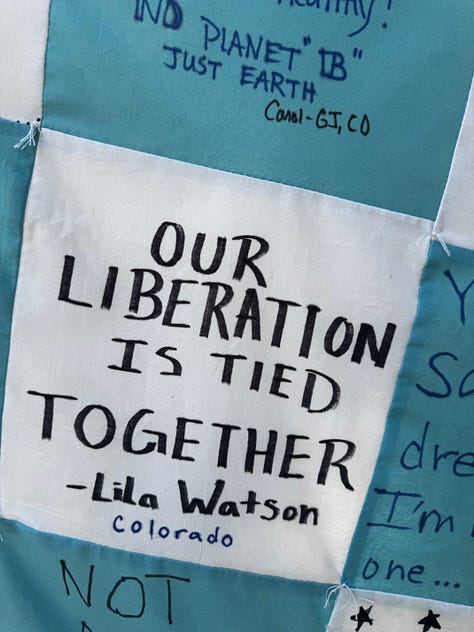 NO PLANET "B"
JUST EARTH
Carol-GJ, CO
OUR
LIBERATION
IS TIED
TOGETHER
-Lila Watson
Colorado
I'm
one...
NOT